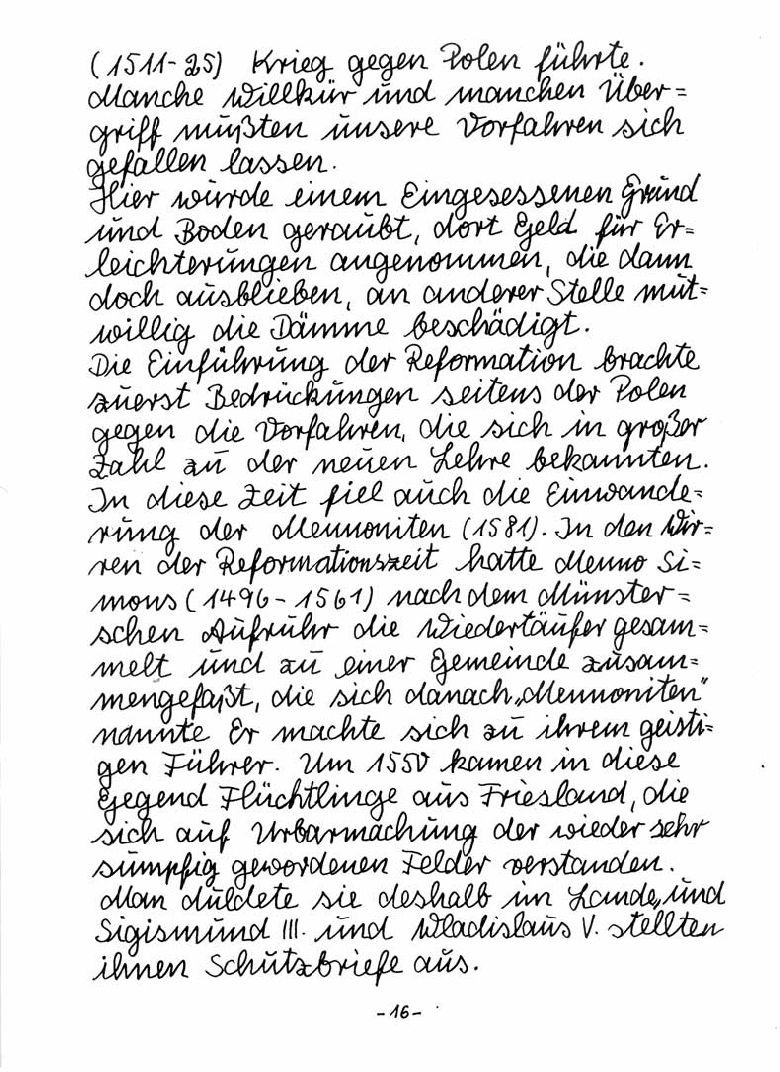 (1511-25) Krieg gegen Polen führte.
Manche Willkür und manchen Über=
griff mußten unsere Vorfahren sich
gefallen lassen.
Hier wurde einem Eingesessenen Grund
und Boden geraubt, dort Geld für Er=
leichterungen angenommen, die dann
doch ausblieben, an anderer Stelle mut=
willig die Dämme beschädigt.
Die Einführung der Reformation brachte
zuerst Bedrückungen seitens der Polen
gegen die Vorfahren, die sich in großer
Zahl zu der neuen Lehre bekannten.
In diese Zeit fiel auch die Einwande=
rung der Mennoniten (1581). In den Wir=
ren der Reformationszeit hatte Menno Si=
mons (1496-1561) nach dem Münster=
schen Aufruhr die Wiedertäufer gesam=
melt und zu einer Gemeinde zusam=
mengefaßt, die sich danach „Mennoniten"
nannte Er machte sich zu ihrem geisti=
gen Führer. Um 1550 kamen in diese
Gegend Flüchtlinge aus Friesland, die
sich auf Urbarmachung der wieder sehr
sumpfig gewordenen Felder verstanden.
Man duldete sie deshalb im Lande, und
Sigismund III. und Wladislaus V. stellten
ihnen Schutzbriefe aus.
-16-